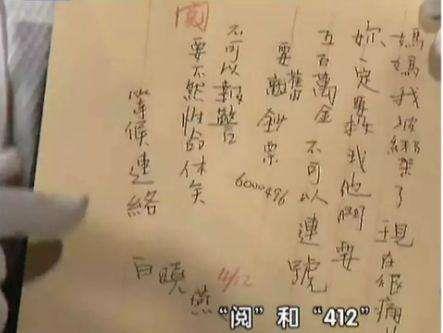 媽媽我被綁架了現在很痛
妳一定要救我他們要
五百萬美金不可以連號
要舊鈔票
6000496
不可以報警
要不然性命休矣
等候連絡
白曉燕
4/12
閱
“阅”和“412”